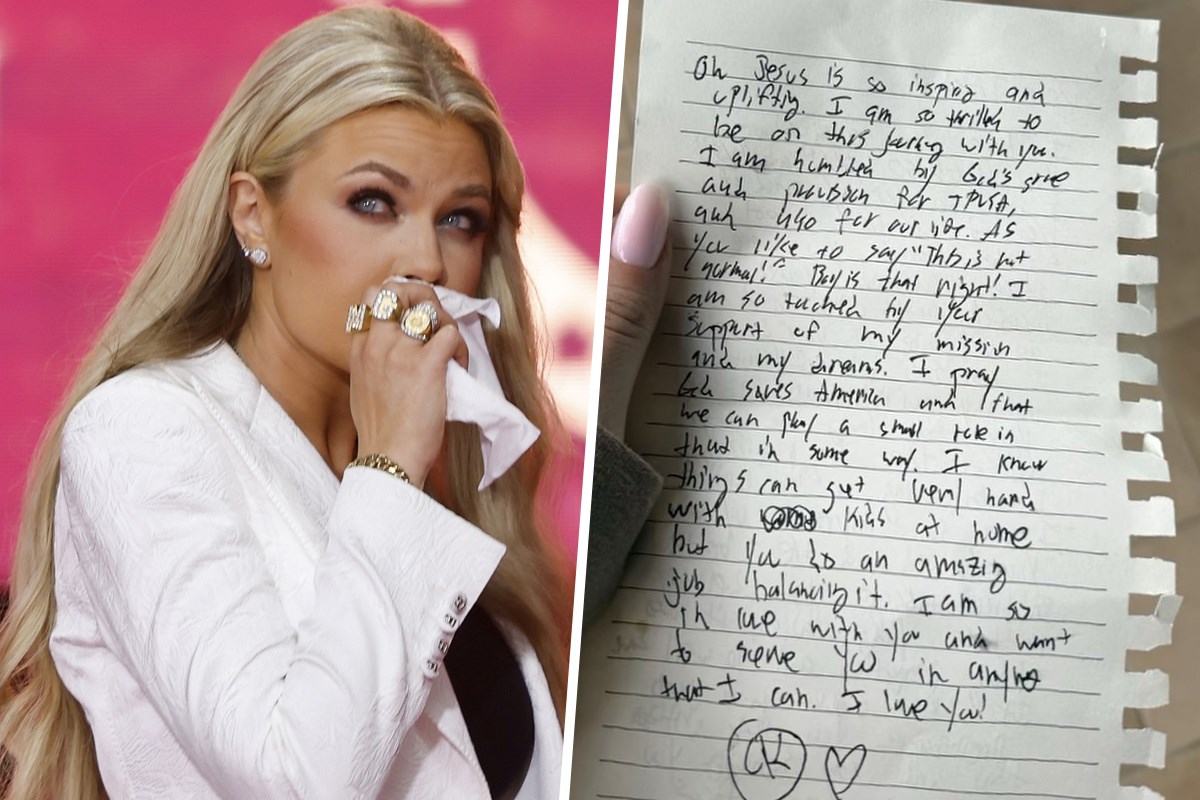 Oh Jesus is so inspirig and
upliftig. I am so thrilled to
be on this journey with you.
I am humbled by God's grace
and provision for TPUSA,
and also for our life. AS
you like to say "This is not
normal!" Boy is that right! I
am so touched by your
support of my mission
and my dreams. I pray
God saves America and that
we can play a small role in
that in some way. I know
things can get very hard
with kids at home
but you do an amazig
job balancing it. I am so
in love with you and want
to serve you in anyway
that I can. I love you!
CK